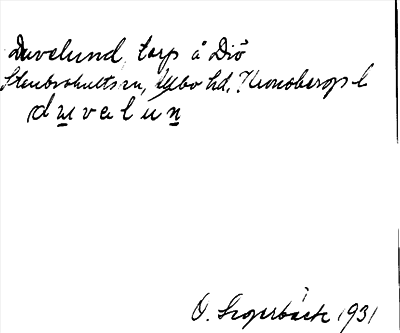 Duvelund, torp å Diö
Stenbrohults sn, Allbo hd, Kronobergs l
duvelun
O. Segerbäck 1931